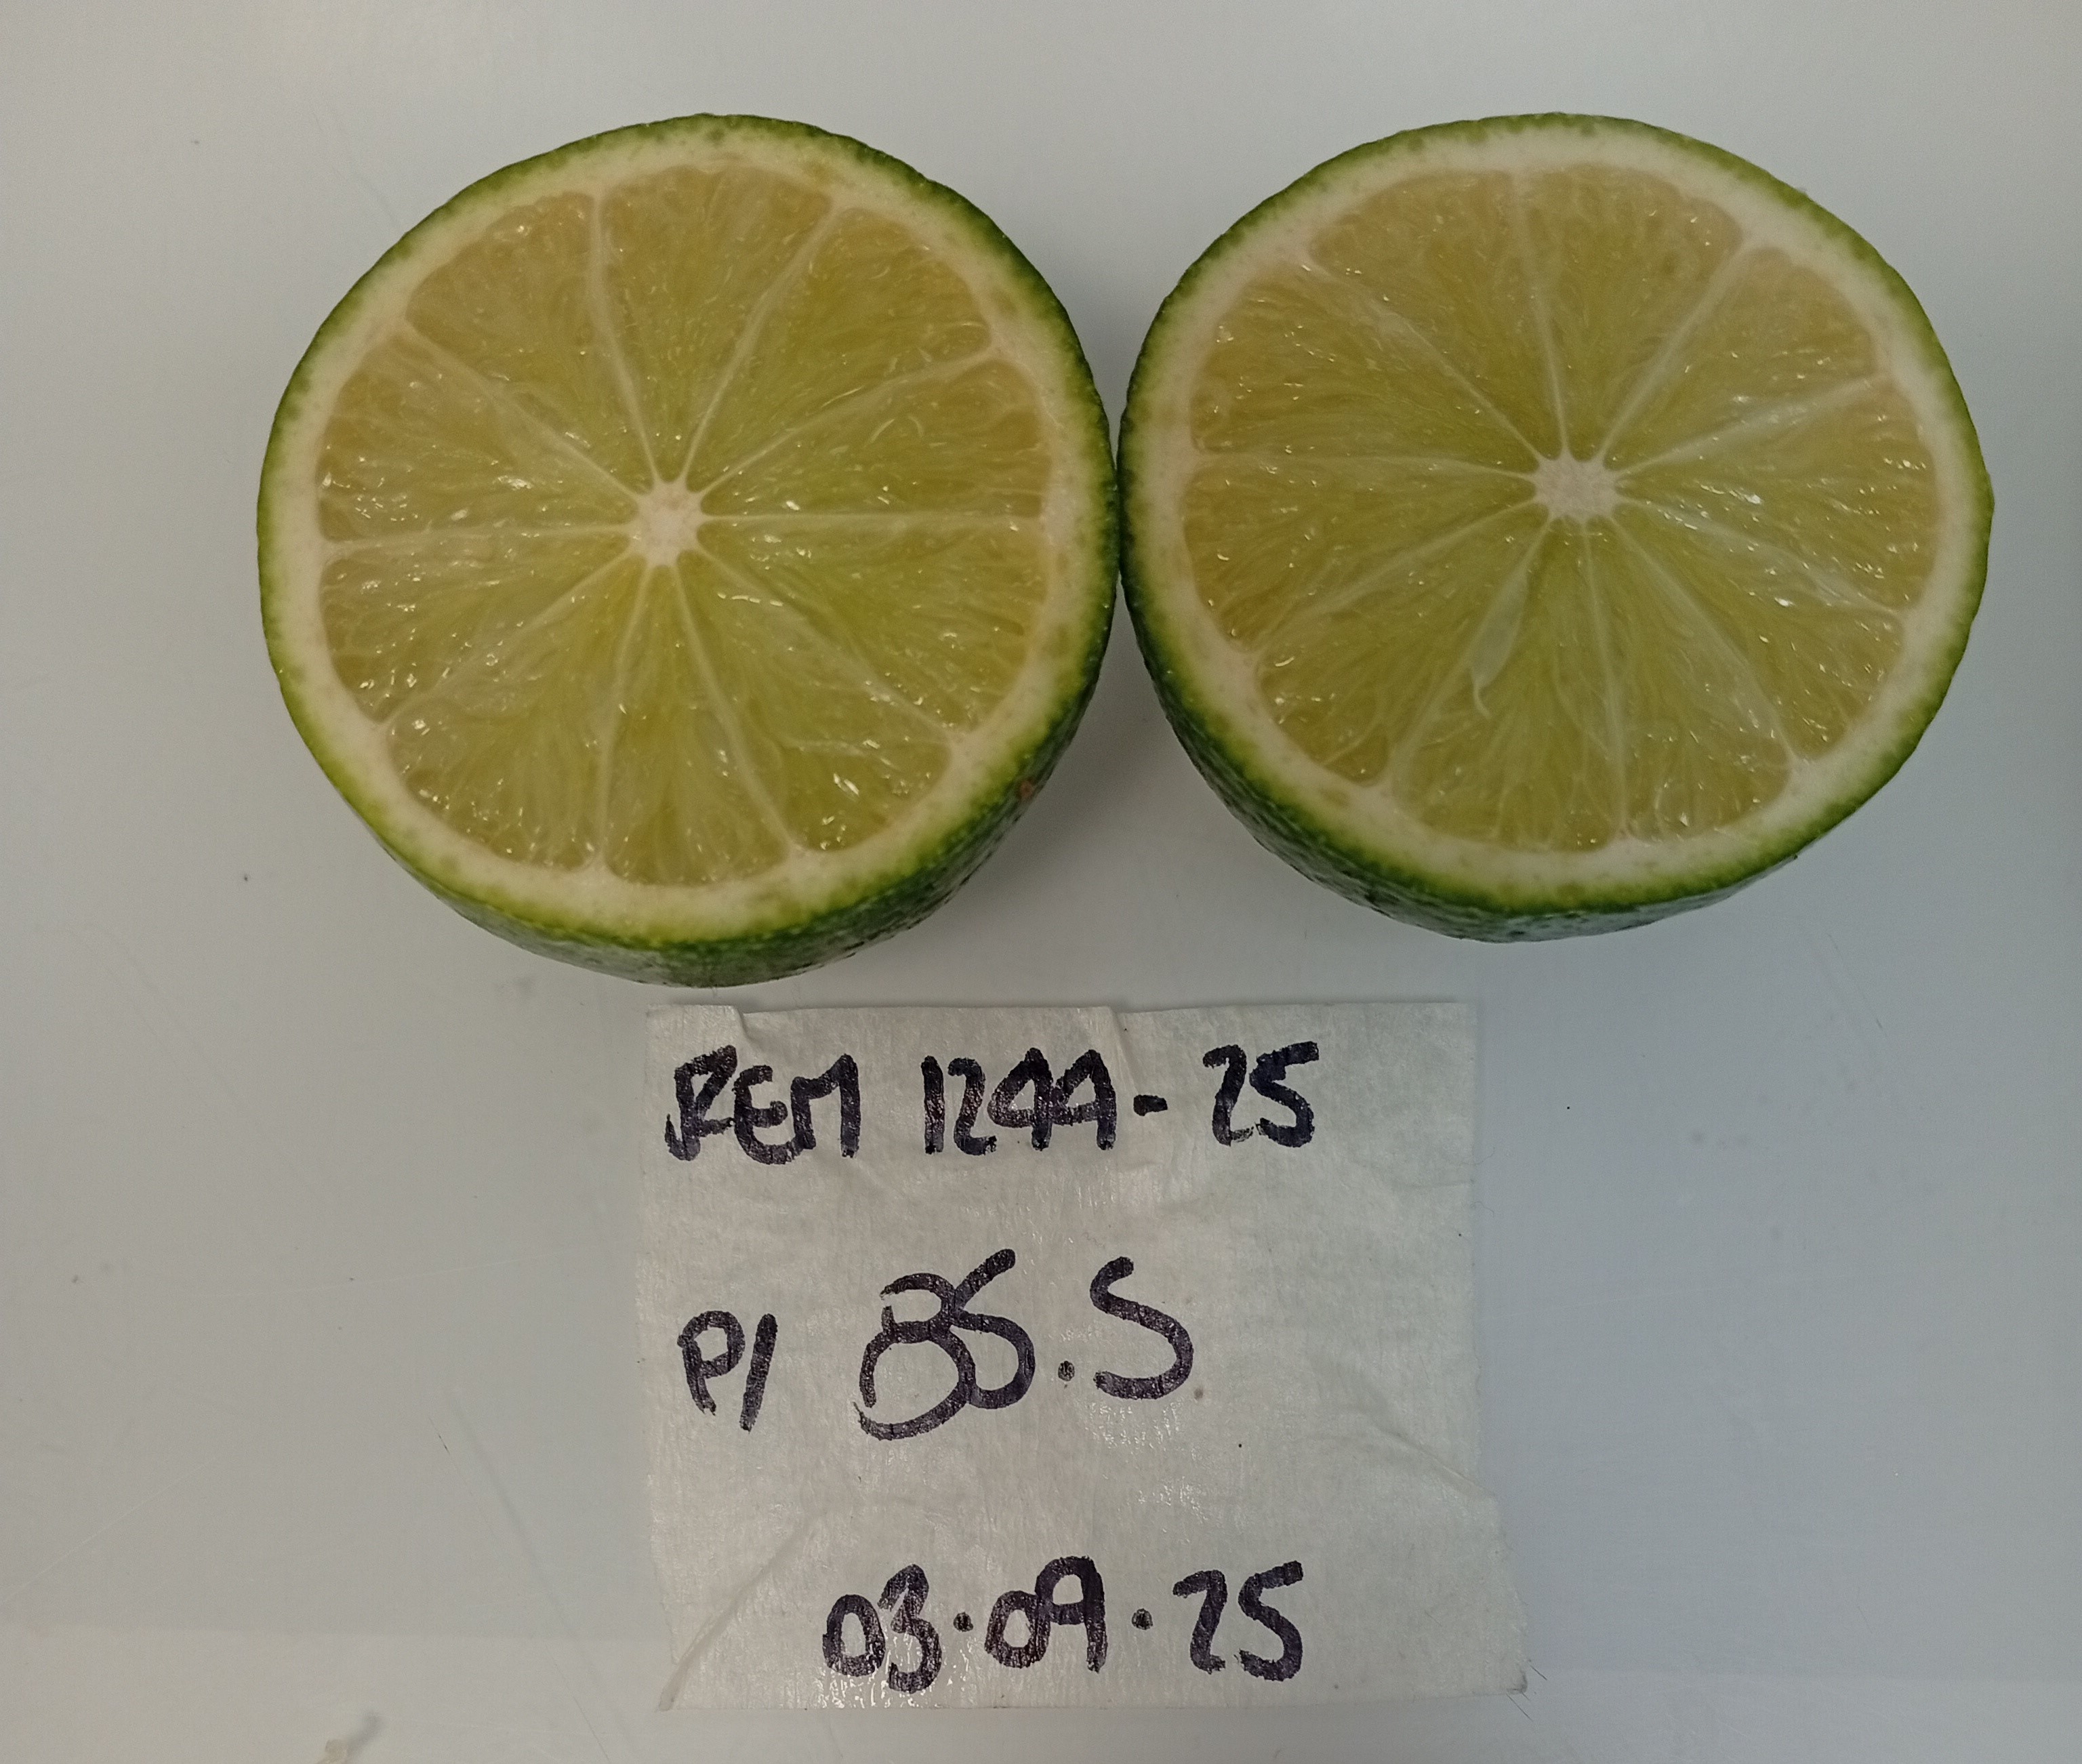 REM 1244-25
P/ BS.S
03.09.25